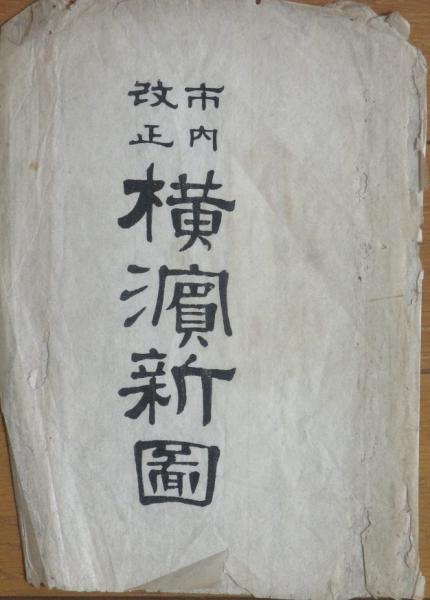 市内
改正
橫濱新圖